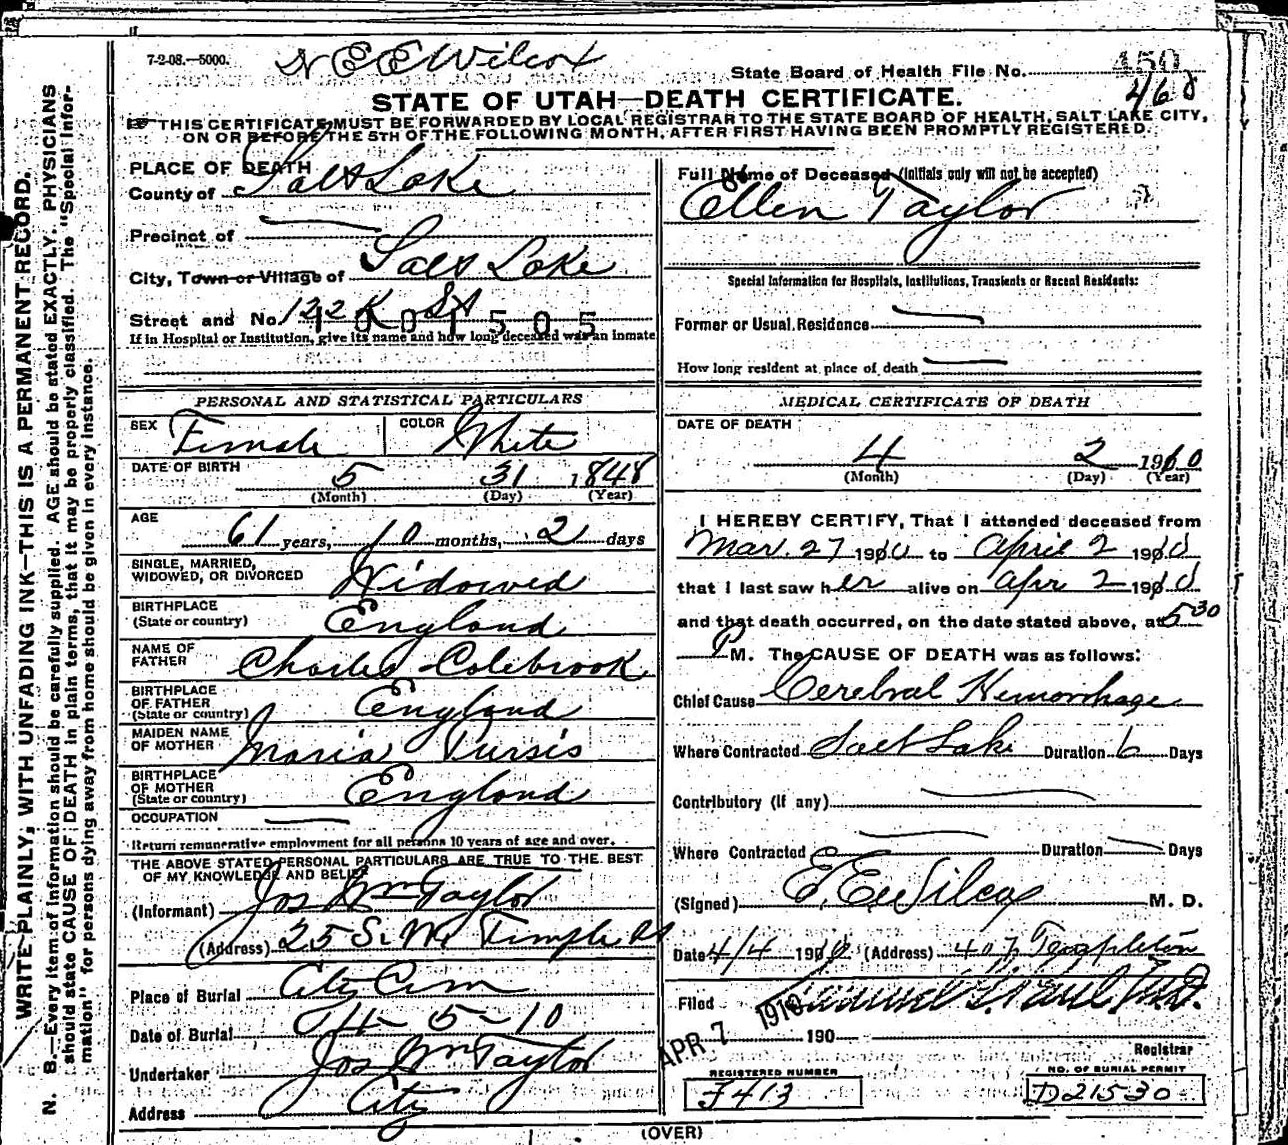 7-2-08.—5000.
N E E Wilcox
State Board of Health File No. 450
460
STATE OF UTAH—DEATH CERTIFICATE.
THIS CERTIFICATE MUST BE FORWARDED BY LOCAL REGISTRAR TO THE STATE BOARD OF HEALTH, SALT LAKE CITY,
ON OR BEFORE THE 5TH OF THE FOLLOWING MONTH, AFTER FIRST HAVING BEEN PROMPTLY REGISTERED.
WRITE PLAINLY, WITH UNFADING INK—THIS IS A PERMANENT RECORD.
N. B.—Every item of information should be carefully supplied. AGE should be stated EXACTLY. PHYSICIANS
should state CAUSE OF DEATH in plain terms, that it may be properly classified. The "Special Infor-
mation" for persons dying away from home should be given in every instance.
PLACE OF DEATH
County of Salt Lake
Precinct of —
City, Town or Village of Salt Lake
Street and No. 122 K St
1001505
If in Hospital or Institution, give its name and how long deceased was an inmate
PERSONAL AND STATISTICAL PARTICULARS
SEX Female COLOR White
DATE OF BIRTH 5 31 1848
(Month) (Day) (Year)
AGE 61 years, 10 months, 2 days
SINGLE, MARRIED,
WIDOWED, OR DIVORCED Widowed
BIRTHPLACE
(State or country) England
NAME OF
FATHER Charles Colebrook
BIRTHPLACE
OF FATHER
(State or country) England
MAIDEN NAME
OF MOTHER Maria Pursis
BIRTHPLACE
OF MOTHER
(State or country) England
OCCUPATION —
Return remunerative employment for all persons 10 years of age and over.
THE ABOVE STATED PERSONAL PARTICULARS ARE TRUE TO THE BEST
OF MY KNOWLEDGE AND BELIEF
(Informant) Jos Wm Taylor
(Address) 25 S. W. Temple St
Place of Burial City Cem
Date of Burial 4-5-10
Undertaker Jos Wm Taylor
Address City
Full Name of Deceased (Initials only will not be accepted)
Ellen Taylor
Special Information for Hospitals, Institutions, Transients or Recent Residents:
Former or Usual Residence —
How long resident at place of death —
MEDICAL CERTIFICATE OF DEATH
DATE OF DEATH
4 2 1910
(Month) (Day) (Year)
I HEREBY CERTIFY, That I attended deceased from
Mar. 27 1910 to April 2 1910
that I last saw her alive on Apr 2 1910
and that death occurred, on the date stated above, at 5 30
P M. The CAUSE OF DEATH was as follows:
Chief Cause Cerebral Hemorrhage
Where Contracted Salt Lake Duration 6 Days
Contributory (if any) —
Where Contracted — Duration — Days
(Signed) E. E. Wilcox M. D.
Date 4/4 1910 (Address) 407 Templeton
Filed APR 7 1910 M.D.
190
Registrar
REGISTERED NUMBER
J413
NO. OF BURIAL PERMIT
D21530
(OVER)